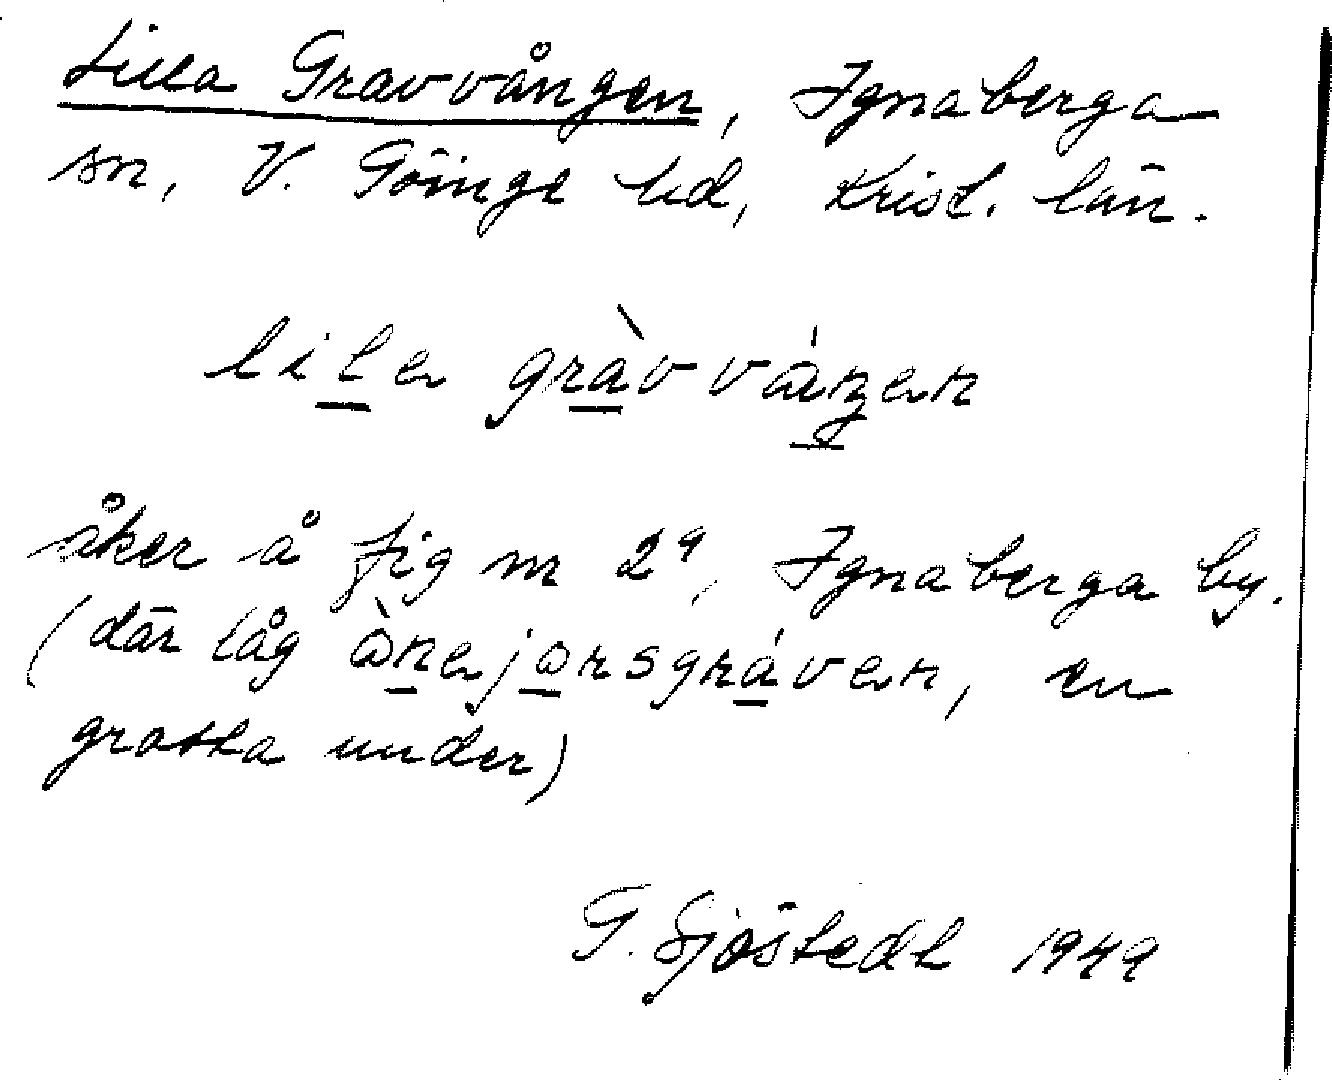 Lilla Gravvången, Ignaberga
sn, V. Göinge hd, Krist. län.
lila gràvvåŋen
åker å fig nr 2⁹, Ignaberga by.
(där låg ànejorsgráven, en
grotta under)
G. Sjöstedt 1949